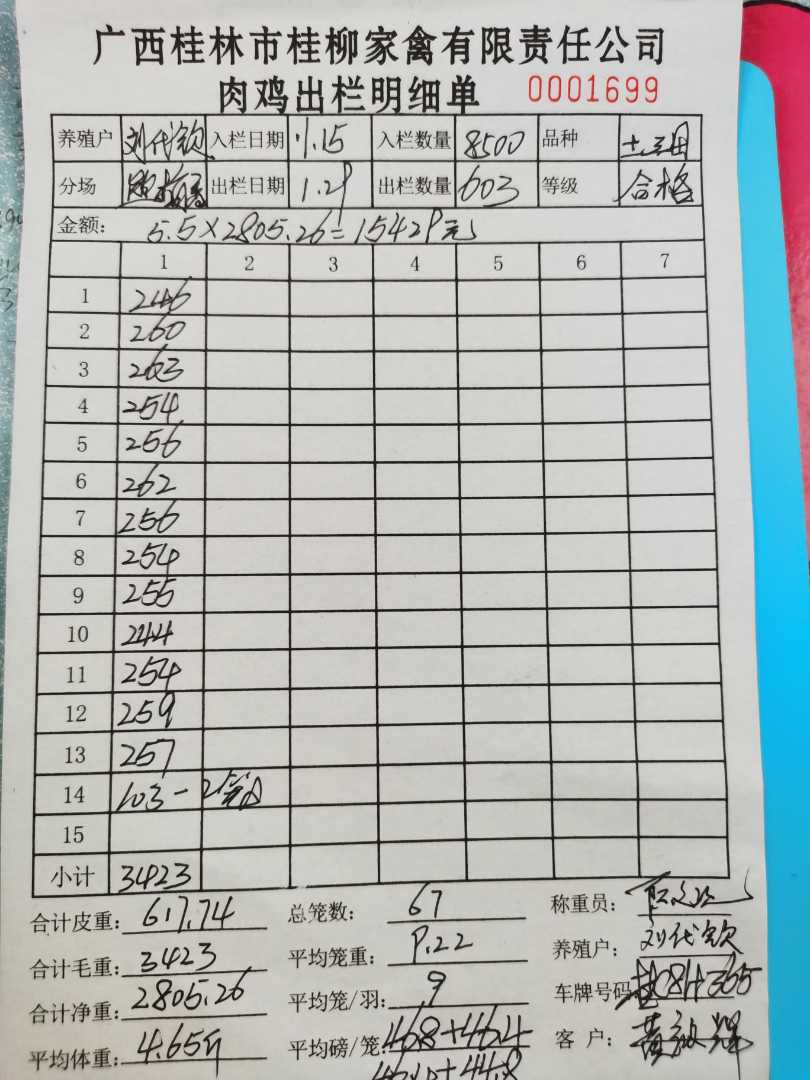 广西桂林市桂柳家禽有限责任公司
肉鸡出栏明细单 0001699
养殖户 刘代钦 入栏日期 入栏数量 8500 品种
分场 出栏日期 1.29 出栏数量 603 等级 合格
金额: 5.5×2805.26=15429元
1 2 3 4 5 6 7
1 246
2 260
3 263
4 254
5 256
6 262
7 256
8 254
9 255
10 244
11 254
12 259
13 257
14 103-2
15
小计 3423
合计皮重: 617.74 总笼数: 67 称重员:
合计毛重: 3423 平均笼重: 9.22 养殖户: 刘代钦
合计净重: 2805.26 平均笼/羽: 9 车牌号码
平均体重: 4.65斤 平均磅/笼: 46.8+46.4 客户: